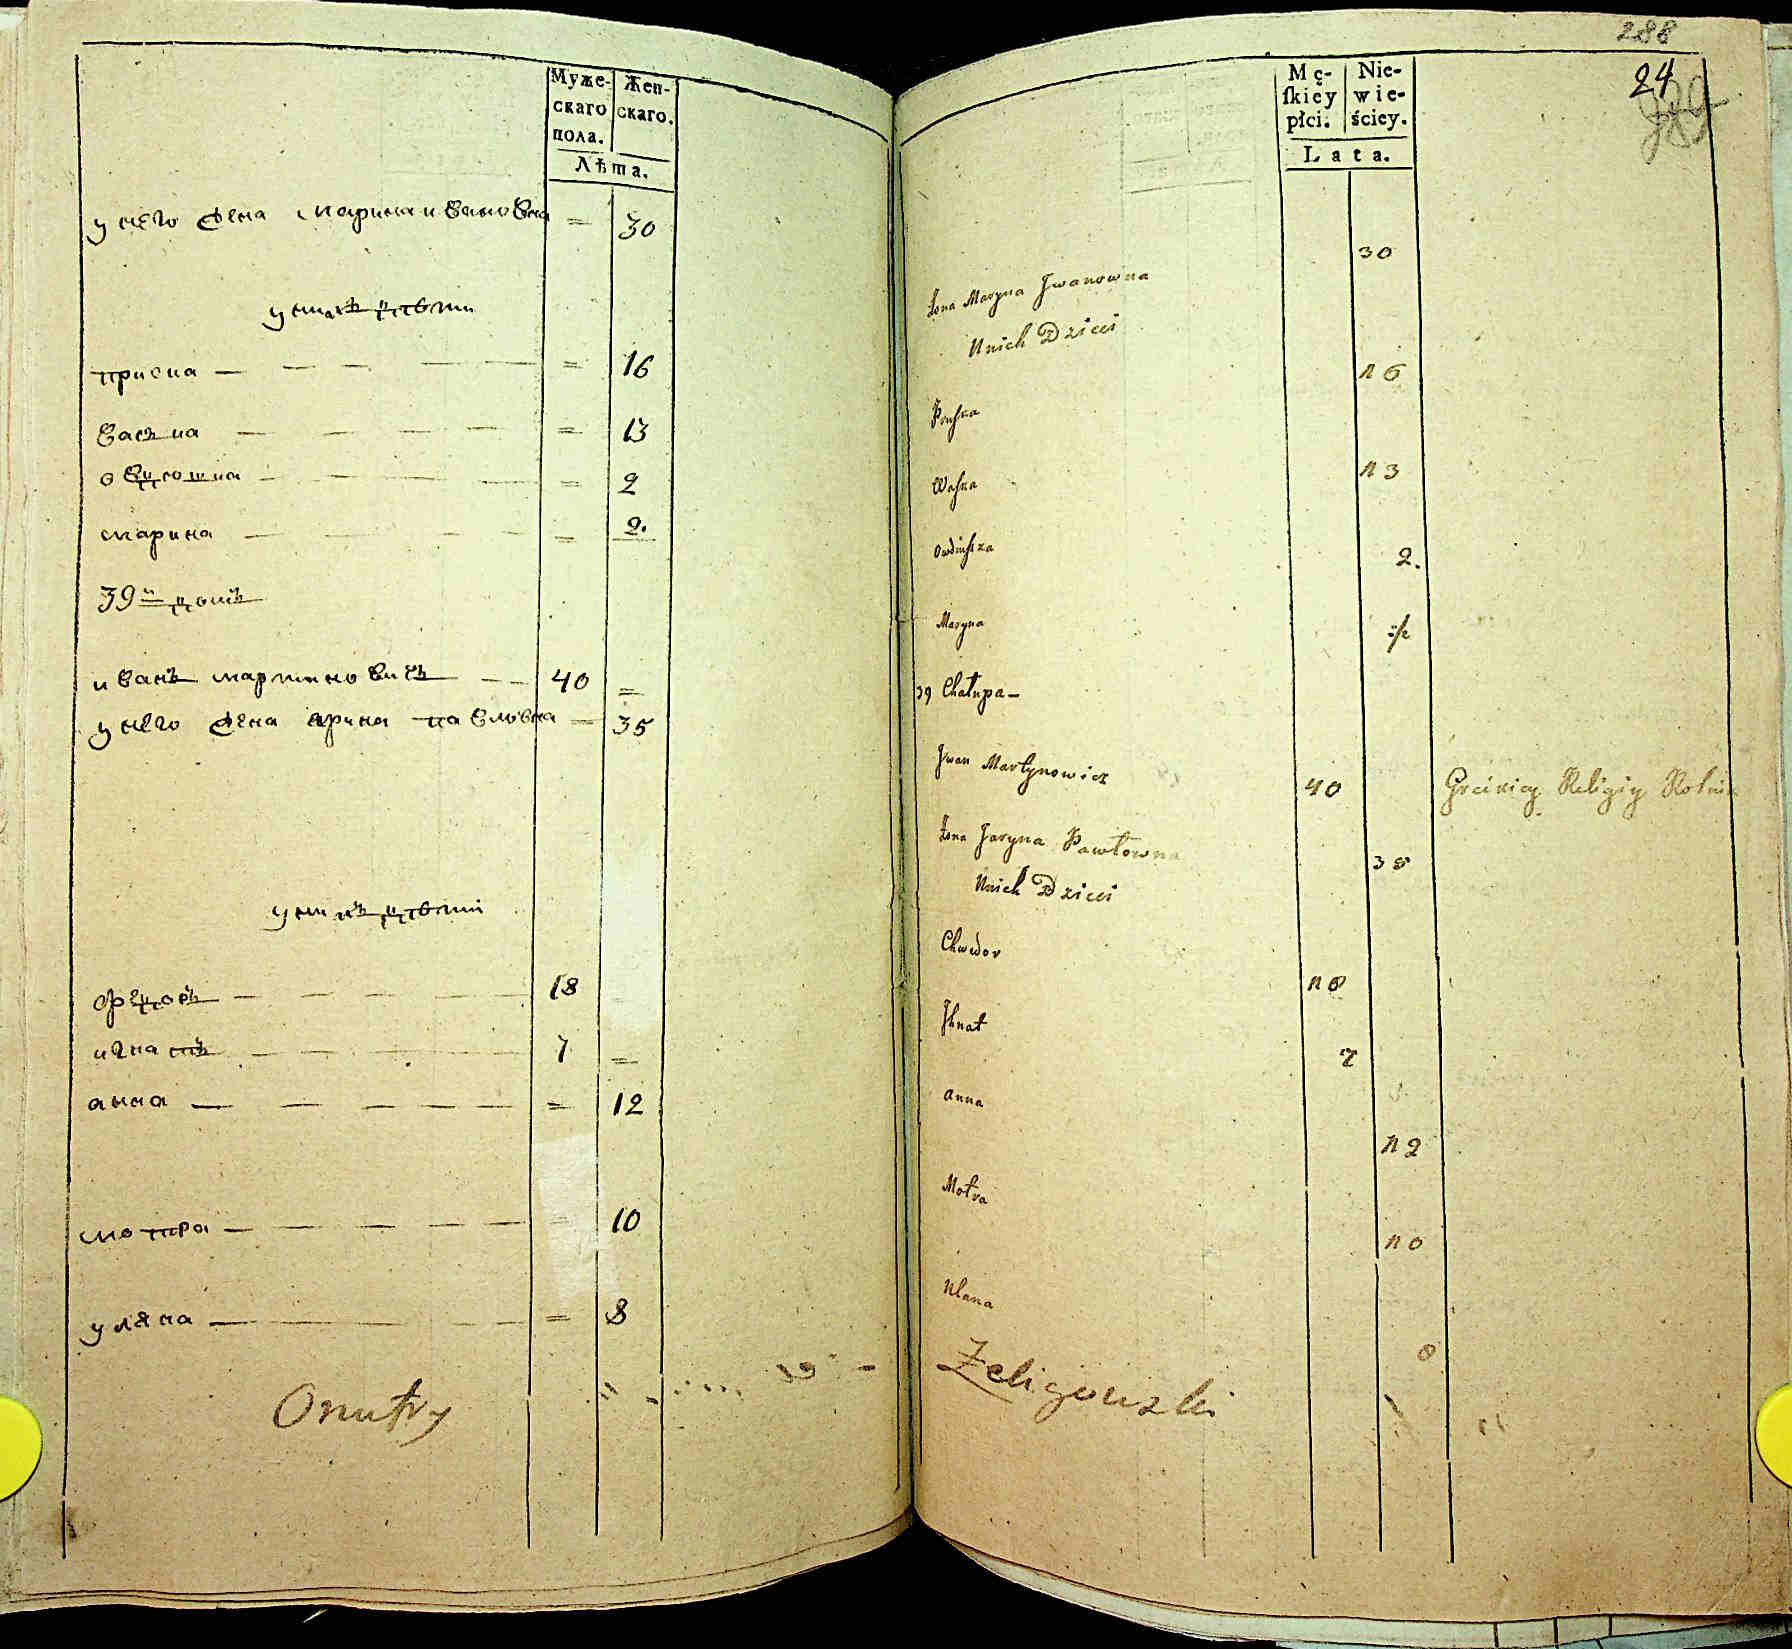 Муже-
скаго
пола.
Жен-
скаго.
Лѣта.
у него жена марина ивановна = 30
у нихъ дѣти
приска = 16
васка = 13
овдюшка = 2
марина = 2.
39й домъ
иванъ мартиновичъ 40 =
у него жена ярина павловна = 35
у нихъ дѣти
федоръ 18
игнатъ 7 =
анна = 12
мотра = 10
уляна = 8
Onufry
288
24
Mę-
skiey
płci.
Nie-
wie-
ściey.
Lata.
Żona Maryna Jwanowna 30
U nich Dzieci
Pryska 16
Waska 13
Owdiuszka 2.
Maryna
39 Chałupa
Jwan Martynowicz 40 Religiy Rolnik
Żona Jaryna Pawłowna 35
U nich Dzieci
Chwedor 18
Jhnat 7
Anna 12
Motra 10
Ulana 8
Zeligowski